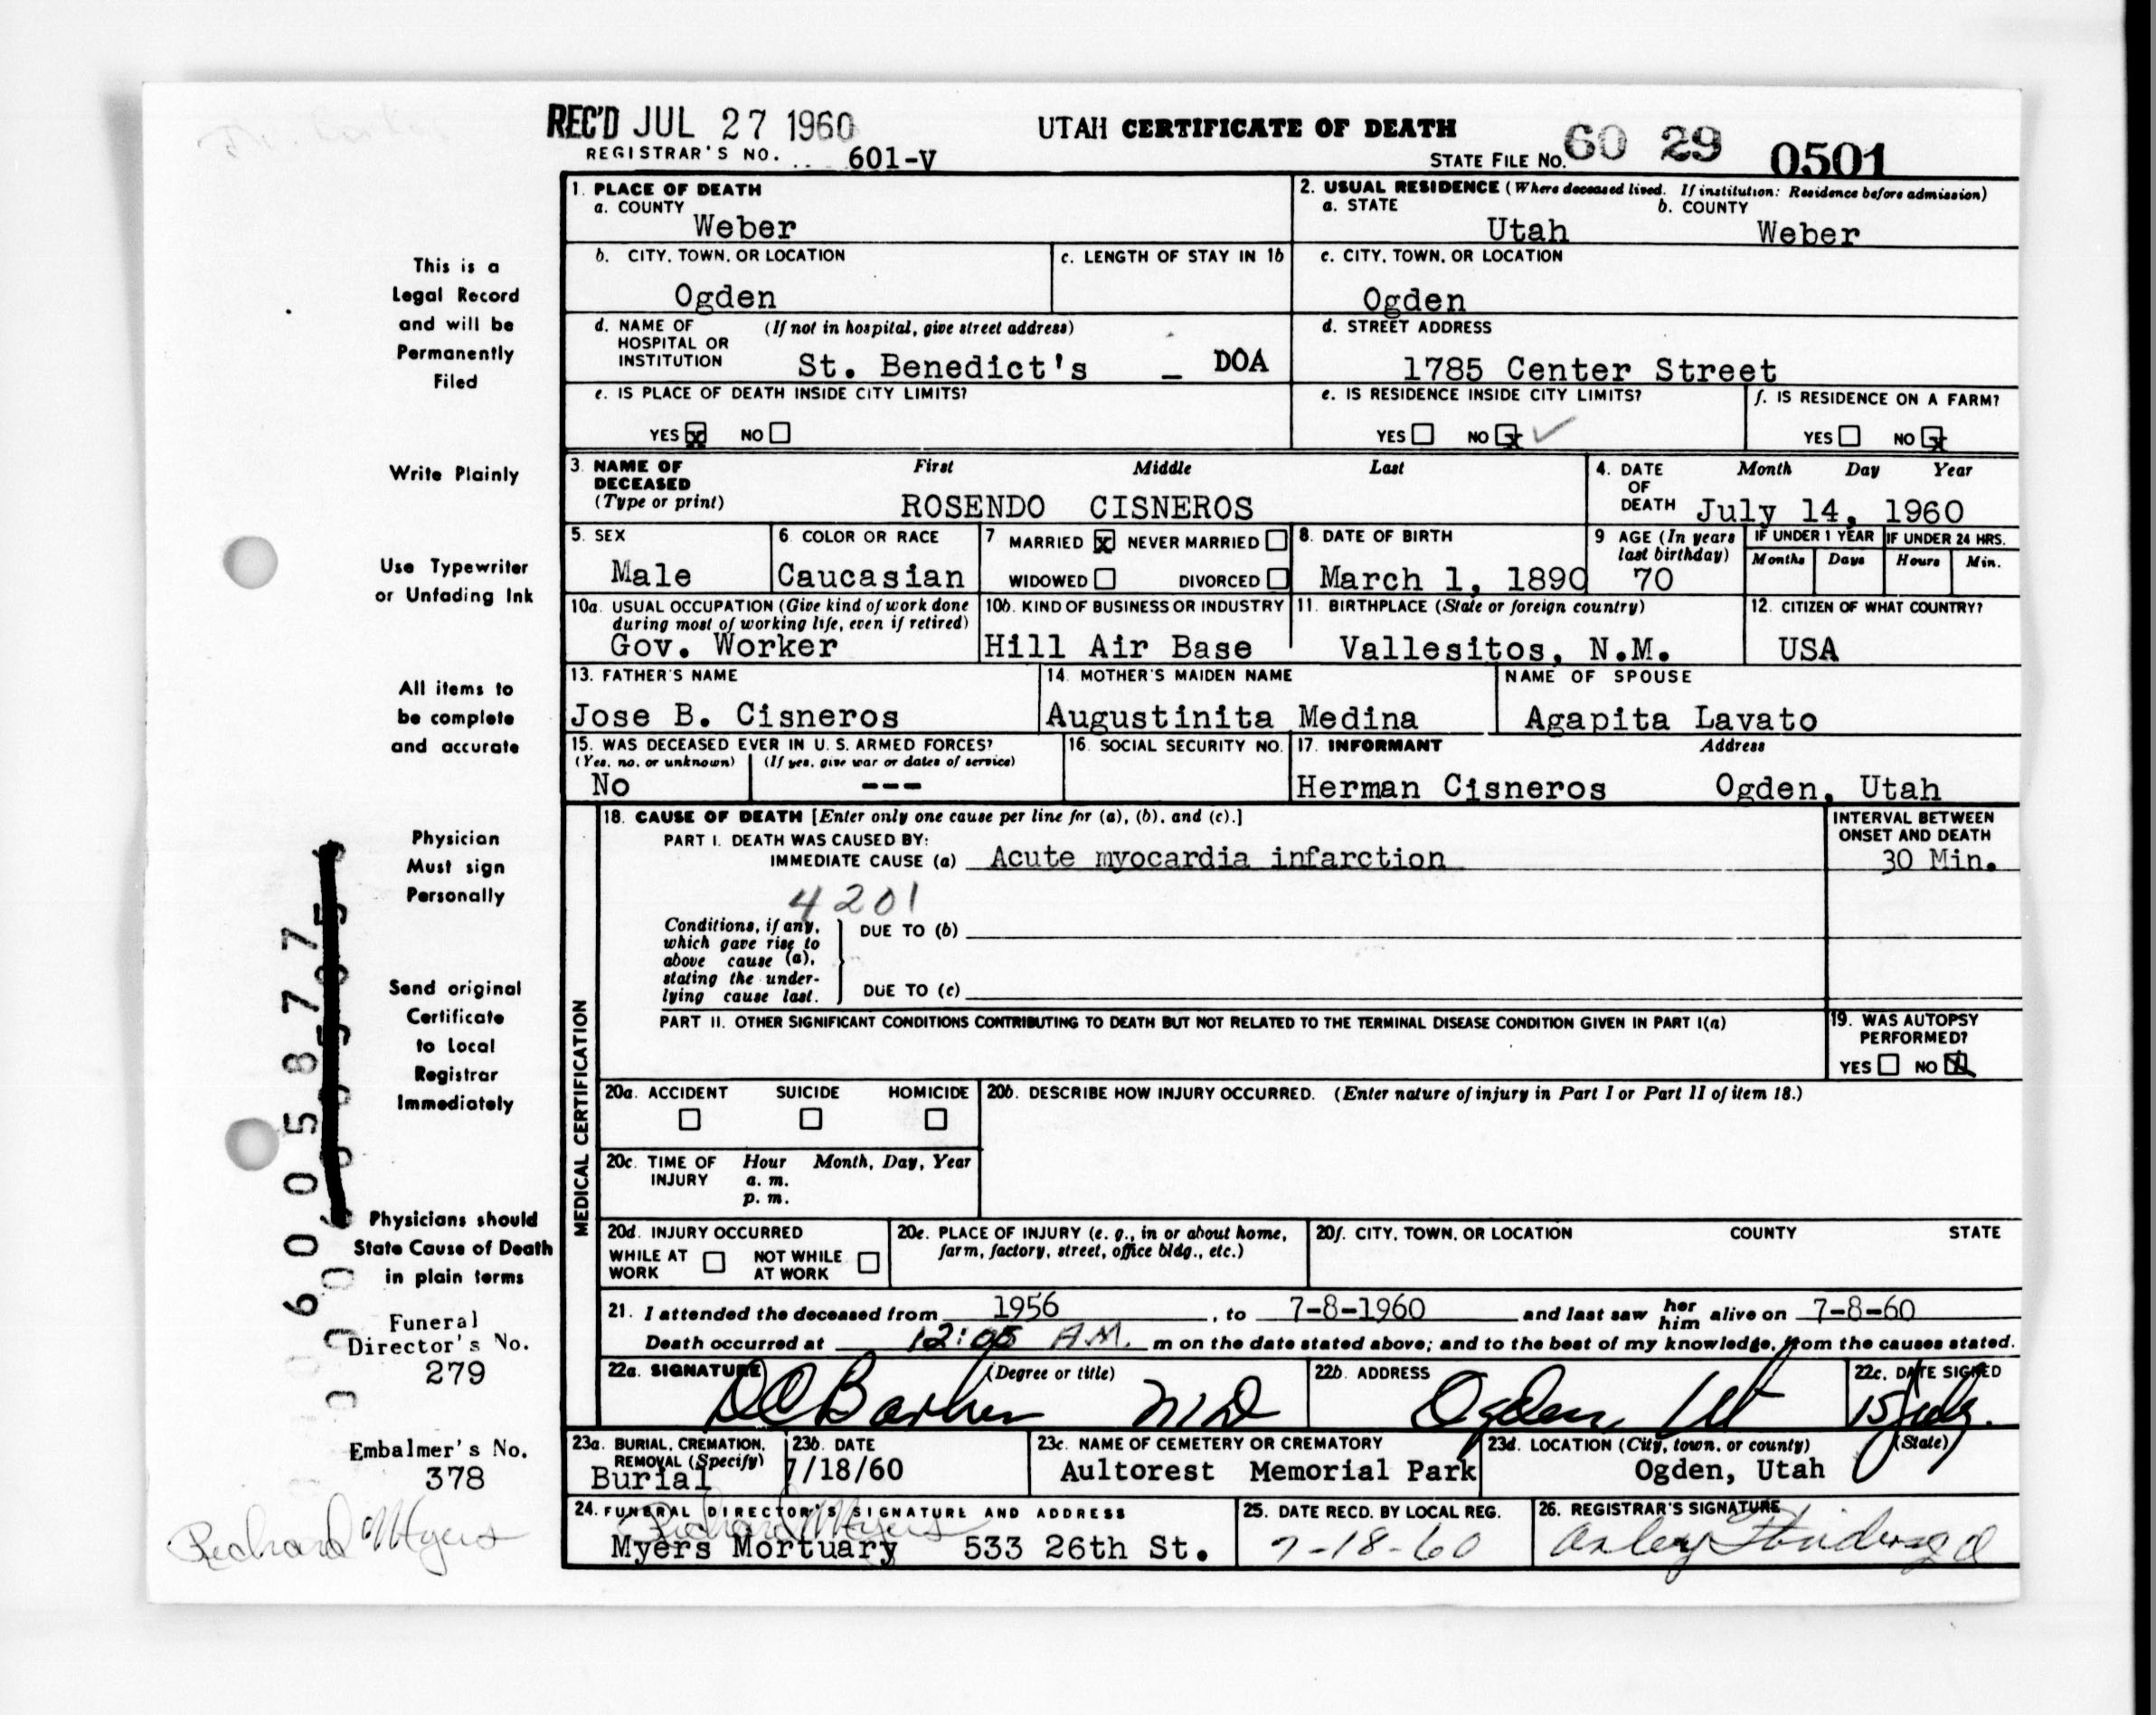 REC'D JUL 27 1960
UTAH CERTIFICATE OF DEATH
REGISTRAR'S NO. 601-V
STATE FILE NO. 60 29 0501
1. PLACE OF DEATH
a. COUNTY
Weber
2. USUAL RESIDENCE (Where deceased lived. If institution: Residence before admission)
a. STATE b. COUNTY
Utah Weber
b. CITY, TOWN, OR LOCATION
Ogden
c. LENGTH OF STAY IN 1b
c. CITY, TOWN, OR LOCATION
Ogden
d. NAME OF (If not in hospital, give street address)
HOSPITAL OR
INSTITUTION St. Benedict's _ DOA
d. STREET ADDRESS
1785 Center Street
e. IS PLACE OF DEATH INSIDE CITY LIMITS?
YES X NO
e. IS RESIDENCE INSIDE CITY LIMITS?
YES NO X ✓
f. IS RESIDENCE ON A FARM?
YES NO X
3. NAME OF First Middle Last
DECEASED
(Type or print) ROSENDO CISNEROS
4. DATE Month Day Year
OF
DEATH July 14, 1960
5. SEX
Male
6. COLOR OR RACE
Caucasian
7 MARRIED X NEVER MARRIED
WIDOWED DIVORCED
8. DATE OF BIRTH
March 1, 1890
9 AGE (In years
last birthday)
70
IF UNDER 1 YEAR
Months Days
IF UNDER 24 HRS.
Hours Min.
10a. USUAL OCCUPATION (Give kind of work done
during most of working life, even if retired)
Gov. Worker
10b. KIND OF BUSINESS OR INDUSTRY
Hill Air Base
11. BIRTHPLACE (State or foreign country)
Vallesitos, N.M.
12. CITIZEN OF WHAT COUNTRY?
USA
13. FATHER'S NAME
Jose B. Cisneros
14. MOTHER'S MAIDEN NAME
Augustinita Medina
NAME OF SPOUSE
Agapita Lavato
15. WAS DECEASED EVER IN U. S. ARMED FORCES?
(Yes, no, or unknown) (If yes, give war or dates of service)
No ---
16. SOCIAL SECURITY NO.
17. INFORMANT Address
Herman Cisneros Ogden, Utah
MEDICAL CERTIFICATION
18. CAUSE OF DEATH [Enter only one cause per line for (a), (b), and (c).]
PART I. DEATH WAS CAUSED BY:
IMMEDIATE CAUSE (a) Acute myocardia infarction
INTERVAL BETWEEN
ONSET AND DEATH
30 Min.
4201
Conditions, if any,
which gave rise to
above cause (a),
stating the under-
lying cause last.
DUE TO (b)
DUE TO (c)
PART II. OTHER SIGNIFICANT CONDITIONS CONTRIBUTING TO DEATH BUT NOT RELATED TO THE TERMINAL DISEASE CONDITION GIVEN IN PART I(a)
19. WAS AUTOPSY
PERFORMED?
YES NO X
20a. ACCIDENT SUICIDE HOMICIDE
20b. DESCRIBE HOW INJURY OCCURRED. (Enter nature of injury in Part I or Part II of item 18.)
20c. TIME OF Hour Month, Day, Year
INJURY a. m.
p. m.
20d. INJURY OCCURRED
WHILE AT NOT WHILE
WORK AT WORK
20e. PLACE OF INJURY (e. g., in or about home,
farm, factory, street, office bldg., etc.)
20f. CITY, TOWN, OR LOCATION COUNTY STATE
21. I attended the deceased from 1956, to 7-8-1960 and last saw her him alive on 7-8-60
Death occurred at 12:05 A.M. m on the date stated above; and to the best of my knowledge, from the causes stated.
22a. SIGNATURE (Degree or title)
DC Barker MD
22b. ADDRESS
Ogden Ut
22c. DATE SIGNED
15 July.
23a. BURIAL, CREMATION,
REMOVAL (Specify)
Burial
23b. DATE
7/18/60
23c. NAME OF CEMETERY OR CREMATORY
Aultorest Memorial Park
23d. LOCATION (City, town, or county) (State)
Ogden, Utah
24. FUNERAL DIRECTOR'S SIGNATURE AND ADDRESS
Richard Myers
Myers Mortuary 533 26th St.
25. DATE RECD. BY LOCAL REG.
7-18-60
26. REGISTRAR'S SIGNATURE
This is a
Legal Record
and will be
Permanently
Filed
Write Plainly
Use Typewriter
or Unfading Ink
All items to
be complete
and accurate
Physician
Must sign
Personally
Send original
Certificate
to Local
Registrar
Immediately
Physicians should
State Cause of Death
in plain terms
Funeral
Director's No.
279
Embalmer's No.
378
Richard Myers
60 0 05877